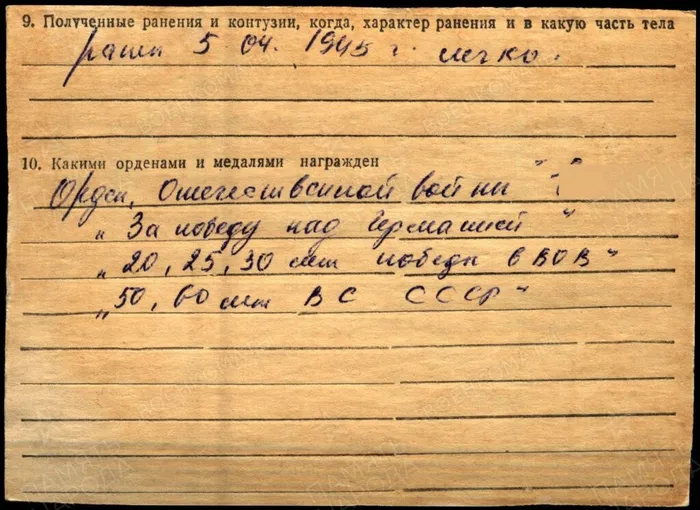 9. Полученные ранения и контузии, когда, характер ранения и в какую часть тела
ранен 5 04. 1945 г. легко.
10. Какими орденами и медалями награжден
Орден, Отечественной войны "
„ За победу над Германией "
„ 20, 25, 30 лет победы в ВОВ "
„ 50, 60 лет ВС СССР "